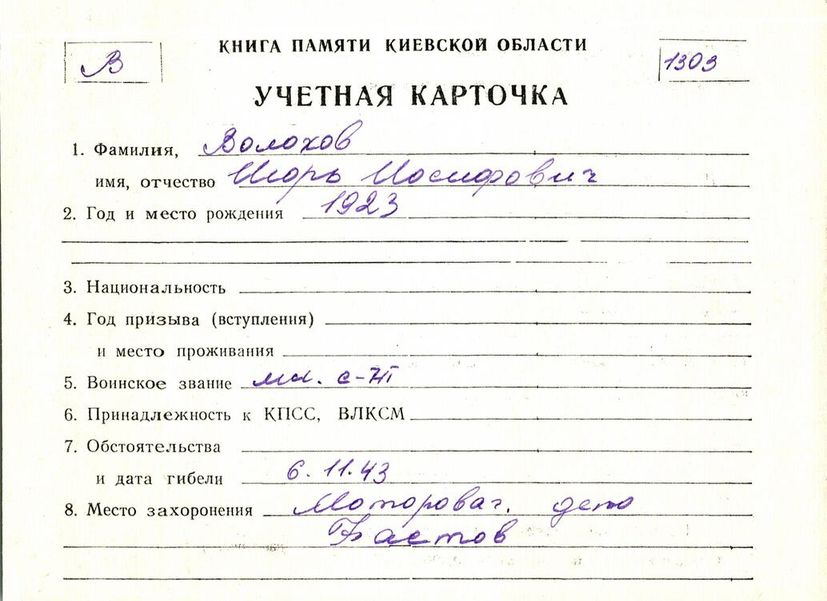 КНИГА ПАМЯТИ КИЕВСКОЙ ОБЛАСТИ
В
1303
УЧЕТНАЯ КАРТОЧКА
1. Фамилия, Волохов
имя, отчество Игорь Иосифович
2. Год и место рождения 1923
3. Национальность
4. Год призыва (вступления)
и место проживания
5. Воинское звание мл. с-нт
6. Принадлежность к КПСС, ВЛКСМ
7. Обстоятельства
и дата гибели 6.11.43
8. Место захоронения депо
Фастов